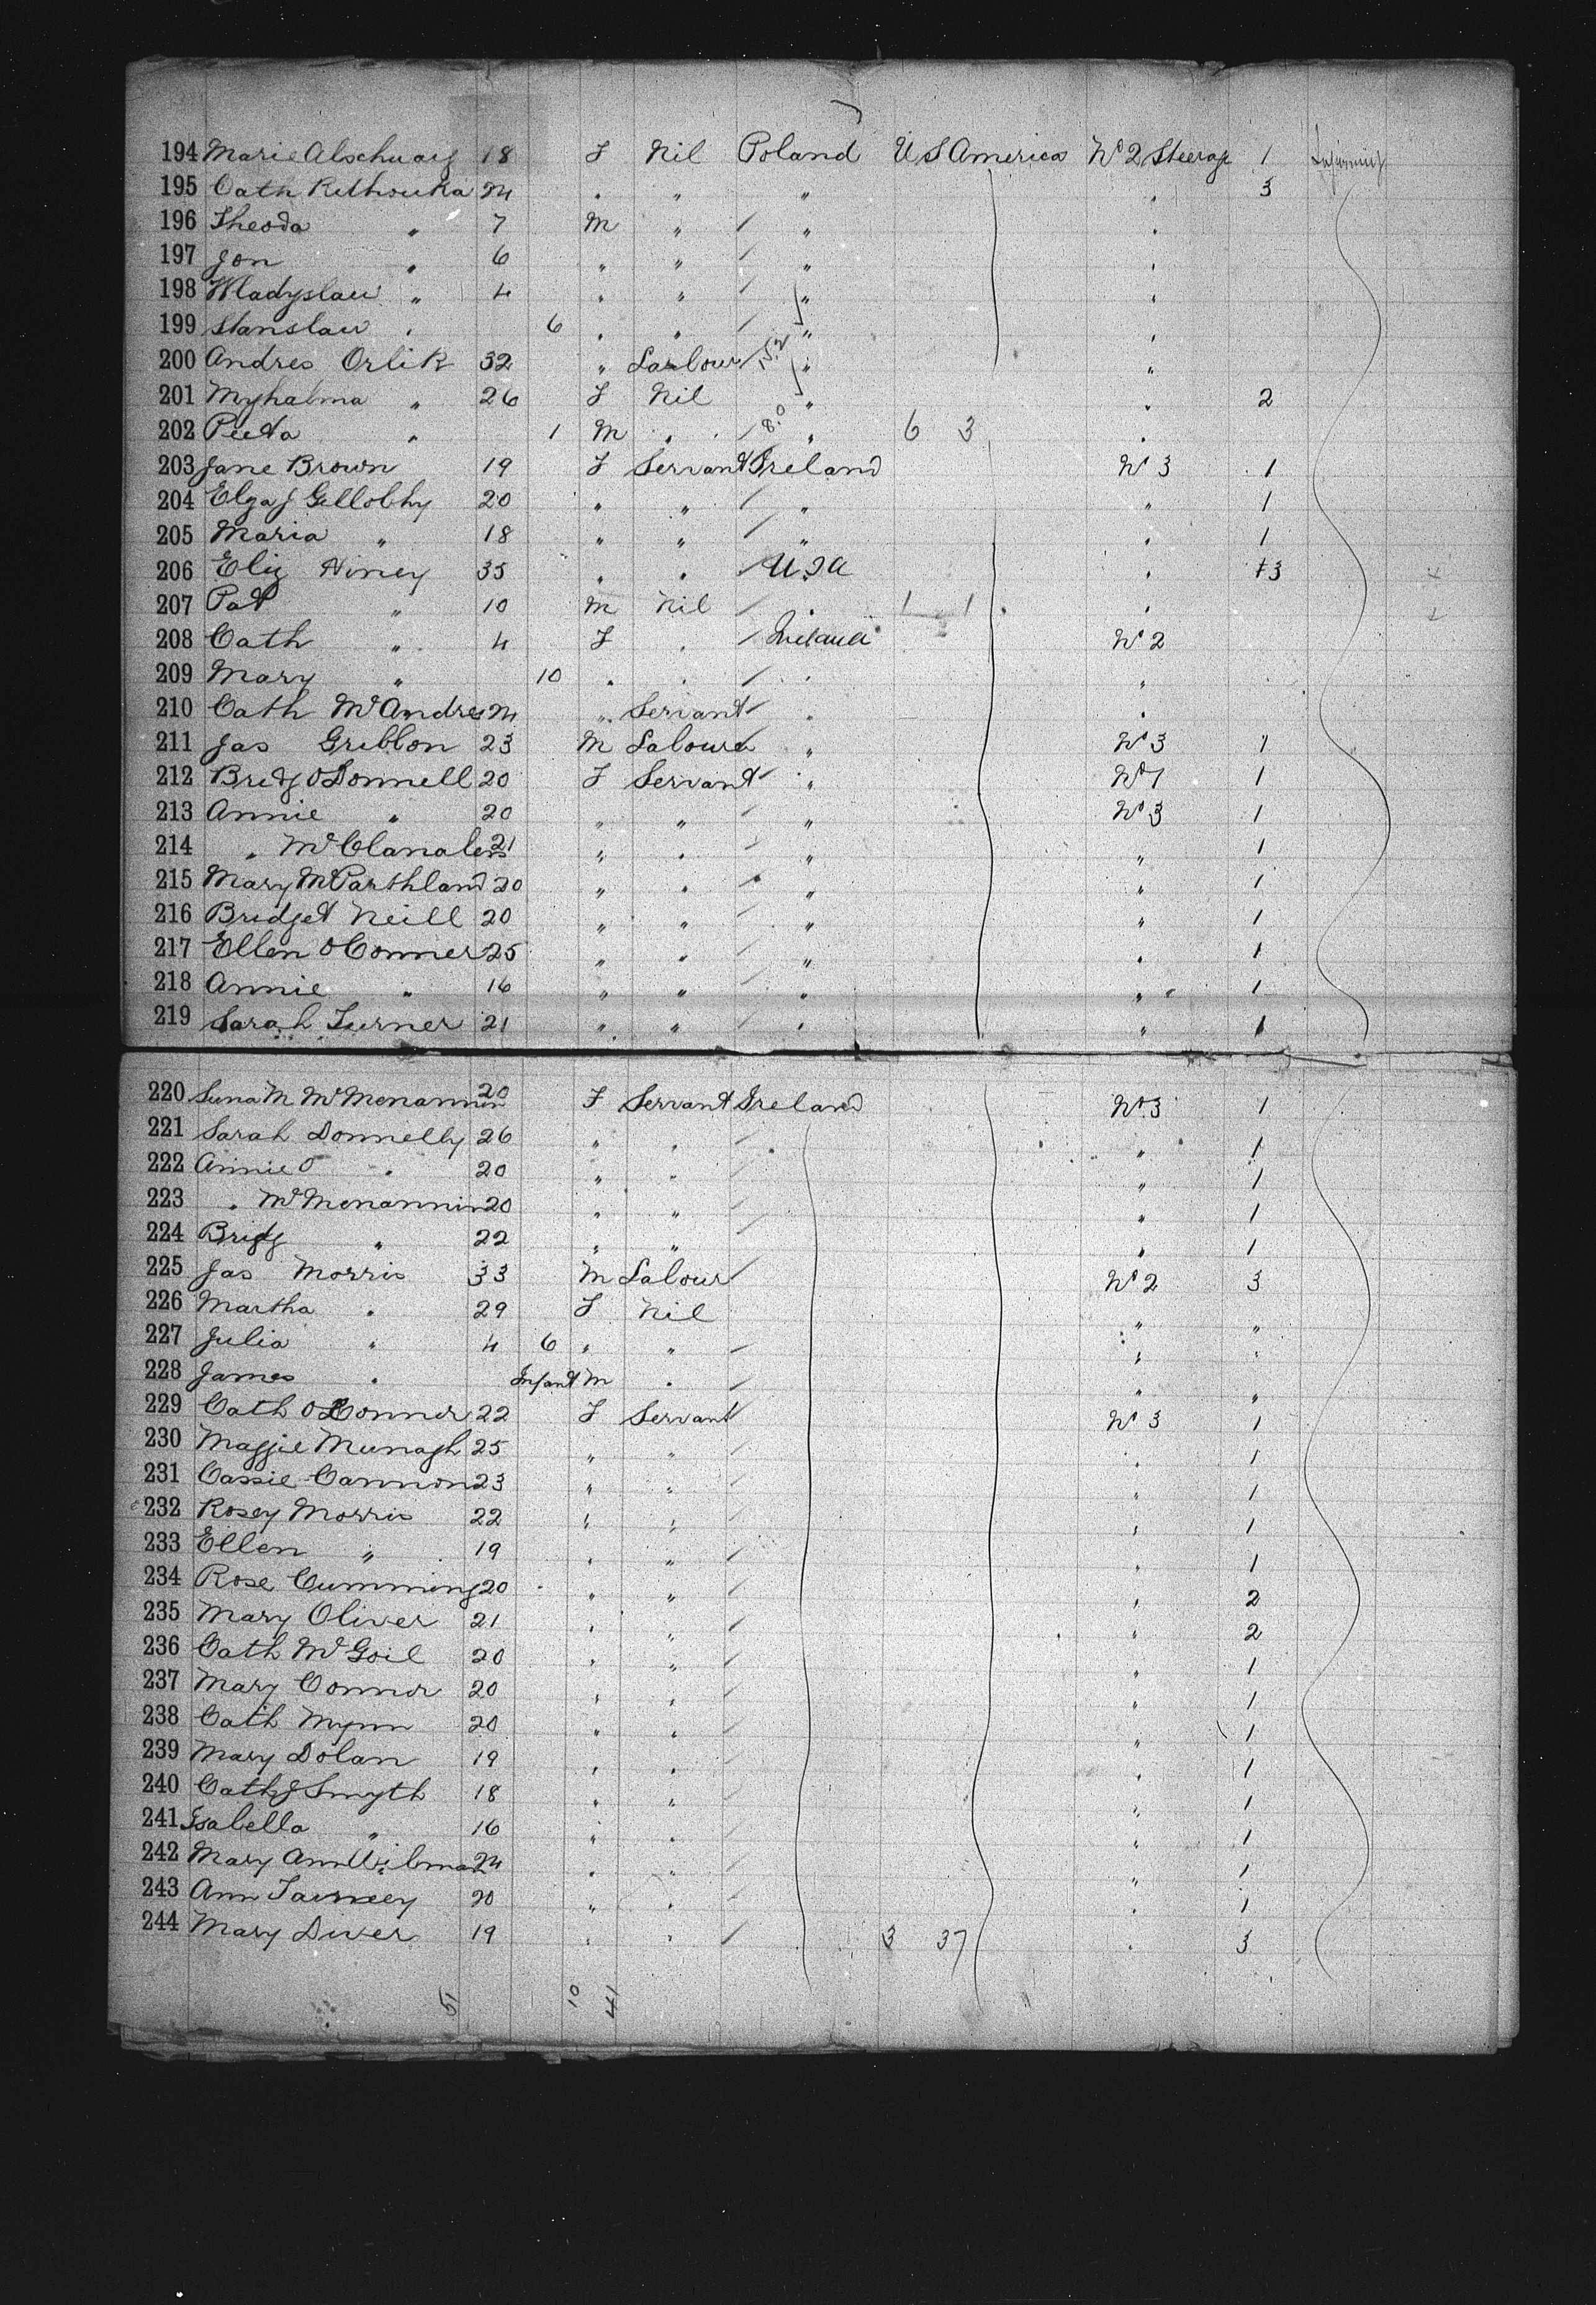 194 Marie Alschuarg 18 F Nil Poland U S America No 2 Steerage 1
195 Cath Rethouka 24 " " " " 3
196 Theoda " 7 M " / " "
197 Jon " 6 " " / " "
198 Wladyslau " 4 " " / " "
199 Stanslau " 6 " " / " "
200 Andres Orlik 32 " Labour / 15.2 " "
201 Myhalma " 26 F Nil " " 2
202 Peeta " 1 M " / 8.0 " 6 3 "
203 Jane Brown 19 F Servant Ireland No 3 1
204 Elza J Gellobhy 20 " " / " " 1
205 Maria " 18 " " / " " 1
206 Eliz Hiney 35 " " / U.S.A " 3
207 Pat " 10 M Nil / " 1 1 "
208 Cath " 4 F " / Ireland No 2
209 Mary " 10 " " / " "
210 Cath McAndrew 24 " Servant / " "
211 Jas Gribbon 23 M Laboure " No 3 1
212 Bridg O Donnell 20 F Servant / " No 1 1
213 Annie " 20 " " / " No 3 1
214 " McClanalens 21 " " / " " 1
215 Mary McParthland 20 " " / " " 1
216 Bridget Neill 20 " " / " " 1
217 Ellen O Conner 25 " " / " " 1
218 Annie " 16 " " / " " 1
219 Sarah Turner 21 " " / " " 1
220 M McMenamin 20 F Servant Ireland No 3 1
221 Sarah Donnelly 26 " " / " " 1
222 Annie O " 20 " " / " 1
223 " McMenamin 20 " " / " 1
224 Bridg " 22 " " / " 1
225 Jas Morris 33 M Labour / No 2 3
226 Martha " 29 F Nil " "
227 Julia " 4 6 " " / " "
228 James " Infant M " / " "
229 Cath O Connor 22 F Servant / No 3 1
230 Maggie Munagh 25 " " / " 1
231 Cassie Cannon 23 " " / " 1
232 Rosey Morris 22 " " / " 1
233 Ellen " 19 " " / " 1
234 Rose Cumming 20 " " / " 2
235 Mary Oliver 21 " " / " 2
236 Cath McGoil 20 " " / " 1
237 Mary Connor 20 " " / " 1
238 Cath Mynn 20 " " / " 1
239 Mary Dolan 19 " " / " 1
240 Cath J Smyth 18 " " / " 1
241 Isabella " 16 " " / " 1
242 Mary Ann 24 " " / " 1
243 Ann 20 " " / " 1
244 Mary Diver 19 " " / 3 37 " 3
51 10 41